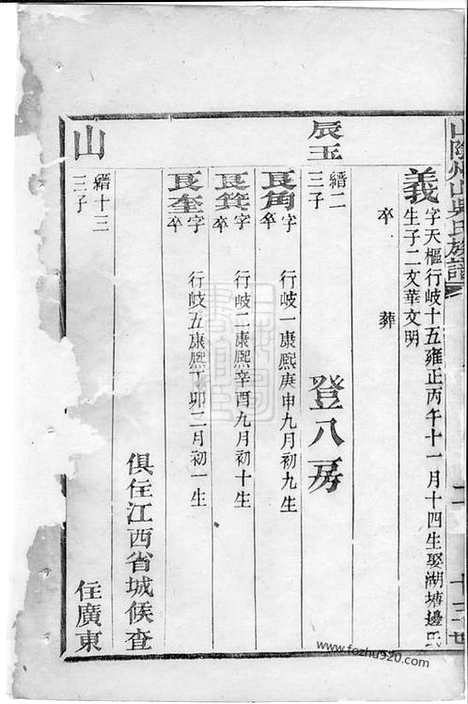 山陰州山吳氏族譜
十三世
義
字天樞行岐十五雍正丙午十一月十四生娶湖塘邊氏
生子二文華文明
卒　葬
登八房
辰玉
縉二
三子
良角　字　行岐一康熙庚申九月初九生
卒
良箕　字　行岐二康熙辛酉九月初十生
卒
良奎　字　行岐五康熙丁卯三月初一生
卒
俱住江西省城候查
山
縉十三
三子
住廣東
www.fozhu920.com